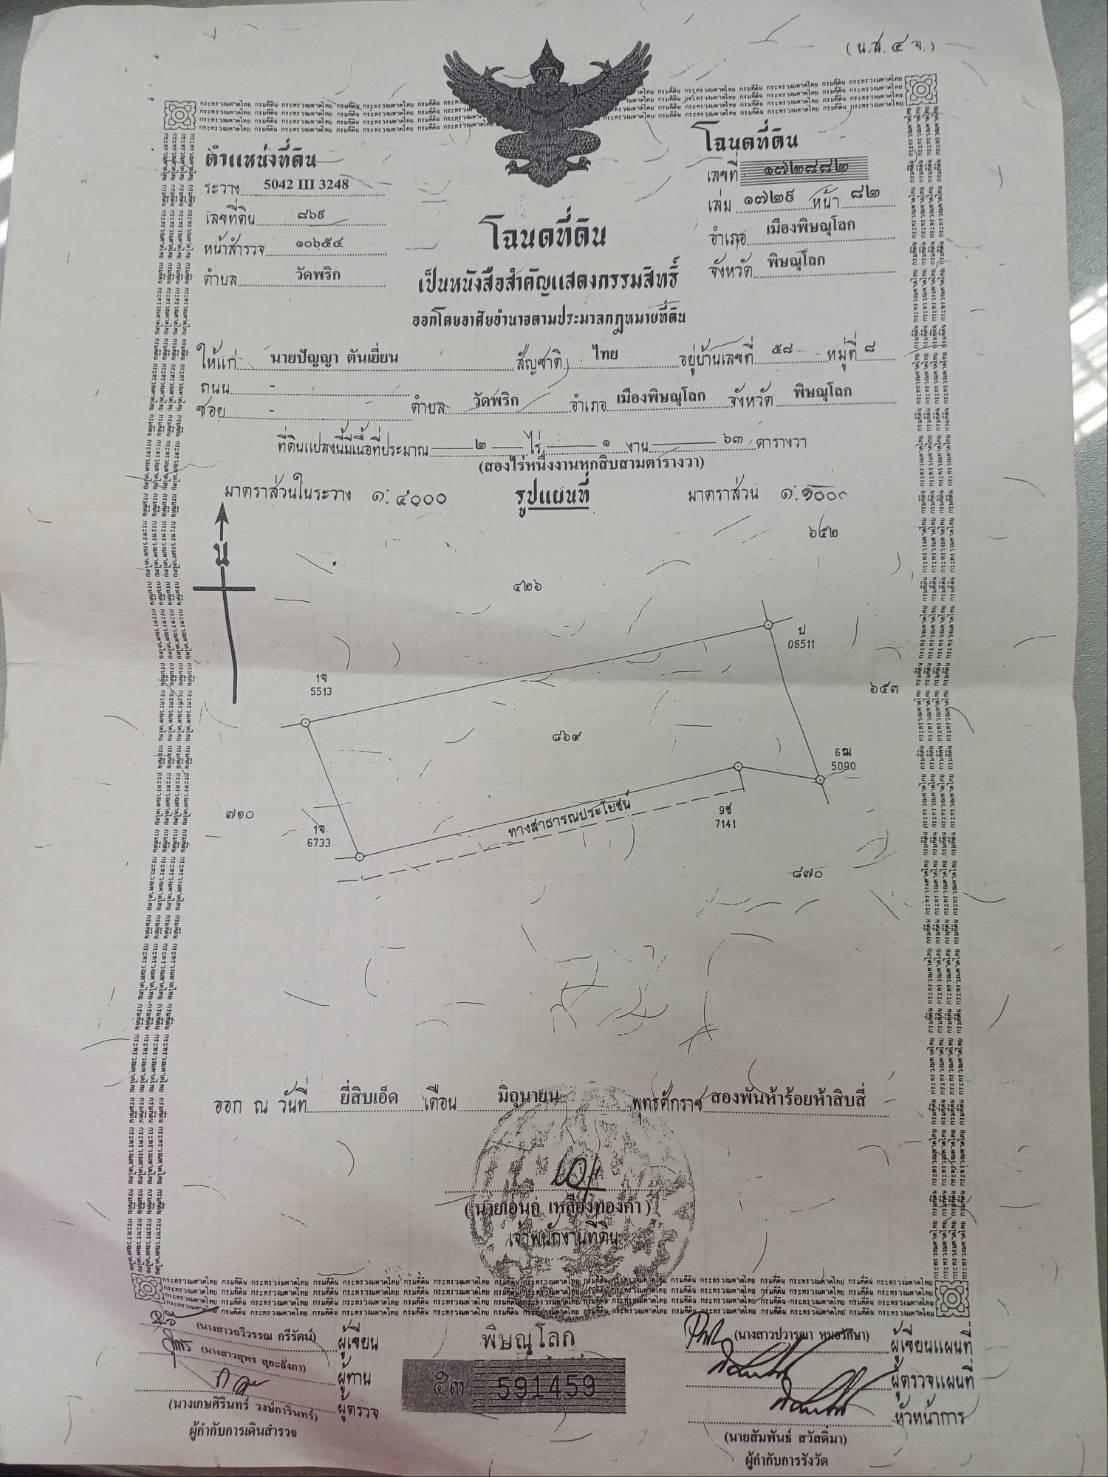 (น.ส.๔ จ.)
ตำแหน่งที่ดิน
ระวาง 5042 III 3248
เลขที่ดิน ๘๖๙
หน้าสำรวจ ๑๐๖๕๔
ตำบล วัดพริก
โฉนดที่ดิน
เลขที่ ๑๗๒๘๘๒
เล่ม ๑๗๒๙ หน้า ๘๒
อำเภอ เมืองพิษณุโลก
จังหวัด พิษณุโลก
โฉนดที่ดิน
เป็นหนังสือสำคัญแสดงกรรมสิทธิ์
ออกโดยอาศัยอำนาจตามประมวลกฎหมายที่ดิน
ให้แก่ นายปัญญา ตันเยี่ยน สัญชาติ ไทย อยู่บ้านเลขที่ ๕๘ หมู่ที่ ๘
ถนน -
ซอย - ตำบล วัดพริก อำเภอ เมืองพิษณุโลก จังหวัด พิษณุโลก
ที่ดินแปลงนี้มีเนื้อที่ประมาณ ๒ ไร่ ๑ งาน ๖๓ ตารางวา
(สองไร่หนึ่งงานหกสิบสามตารางวา)
มาตราส่วนในระวาง ๑:๔๐๐๐ รูปแผนที่ มาตราส่วน ๑:๑๐๐๐
น
๖๕๒
๔๒๖
ป
06511
1จ
5513
๖๕๓
๘๖๙
6ฒ
5090
๗๑๐
ทางสาธารณประโยชน์
9ช
7141
1จ
6733
๘๗๐
ออก ณ วันที่ ยี่สิบเอ็ด เดือน มิถุนายน พุทธศักราช สองพันห้าร้อยห้าสิบสี่
(นายเอนก เหลืองทองคำ)
เจ้าพนักงานที่ดิน
(นางสาวถวิวรรณ กรีรัตน์) ผู้เขียน
ผู้ทาน
(นางเกษศิรินทร์ วงษ์การินทร์) ผู้ตรวจ
ผู้กำกับการเดินสำรวจ
พิษณุโลก
๕๓ 591459
(นางสาวปวารณา หมอรักษา) ผู้เขียนแผนที่
ผู้ตรวจแผนที่
หัวหน้าการ
(นายสัมพันธ์ สวัสดิ์มา)
ผู้กำกับการรังวัด